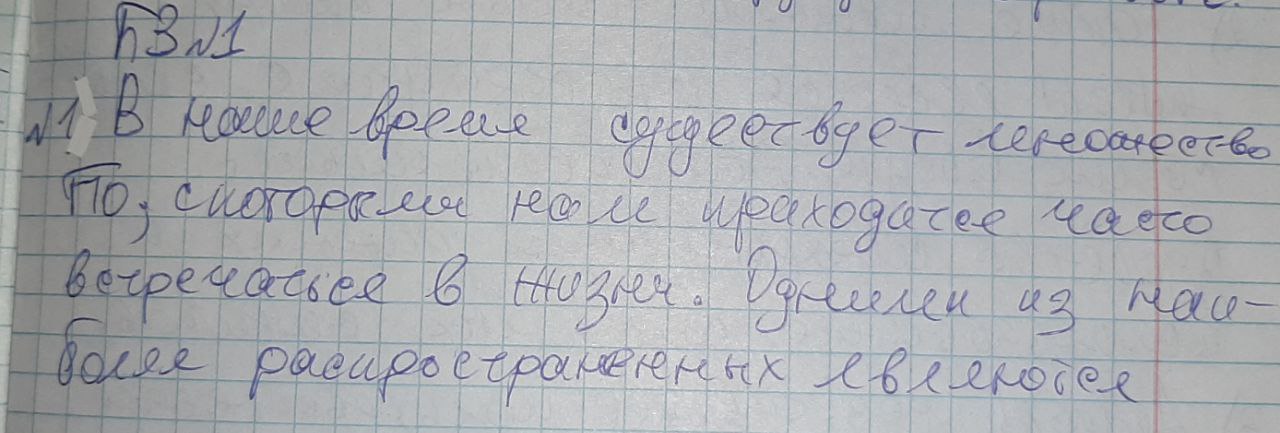 ПЗ №1
№1 В наше время существует множество
ПО, с которыми нам приходится часто
встречаться в жизни. Одними из наи-
более распространенных являются